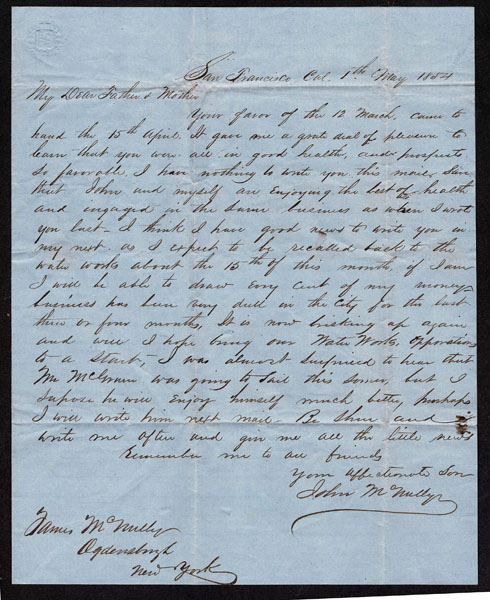 San Francisco Cal. 1th May 1854
My Dear Father & Mother
Your favor of the 12 March, came to
hand the 15th April. It gave me a grate deal of pleasure to
learn that you were all in good health, and prospects
so favorable. I have nothing to write you this male,
that John and myself are Enjoying the best of health
and engaged in the same business as when I wrote
you last - I think I have good news to write you in
my next as I expect to be recalled back to the
water works about the 15th of this month, if I am
I will be able to draw evry cent of my money -
business has been very dull in the City for the last
three or four months, It is now brisking up again
and will I hope bring our Water Works Opporations
to a start, - I was almost surprised to hear that
Mr. was going to Sail this but I
Supose he will Enjoy himself much better, purhaps
I will write him next mail - Be Shure and
write me often and give me all the little news
Remember me to all friends
Your affectionate Son
John McNullyr
James McNully
Ogdensburgh
New York